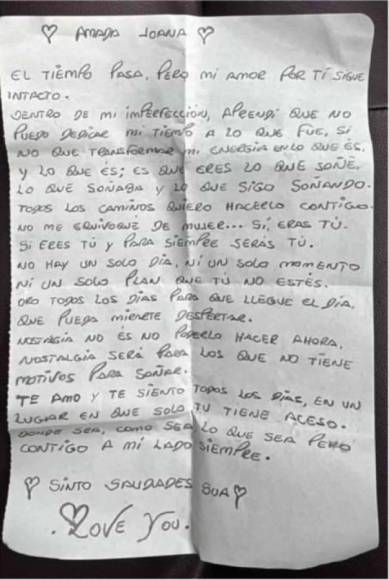 ♡ AMADA JOANA ♡
EL TIEMPO PASA, PERO MI AMOR POR TÍ SIGUE
INTACTO.
DENTRO DE MI IMPERFECCIÓN, APRENDÍ QUE NO
PUEDO DEDICAR MI TIEMPO A LO QUE FUE, SÍ
NO QUE TRANSFORMAR MI ENERGÍA EN LO QUE ES,
Y LO QUE ES; ES QUE ERES LO QUE SOÑÉ,
LO QUE SOÑABA Y LO QUE SIGO SOÑANDO.
TODOS LOS CAMINOS QUIERO HACERLO CONTIGO.
NO ME EQUIVOQUÉ DE MUJER... SÍ, ERAS TÚ.
SI ERES TÚ Y PARA SIEMPRE SERÁS TÚ.
NO HAY UN SOLO DÍA, NI UN SOLO MOMENTO
NI UN SOLO PLAN QUE TÚ NO ESTÉS.
ORO TODOS LOS DÍAS PARA QUE LLEGUE EL DÍA,
QUE PUEDA DESPERTAR.
NOSTALGIA NO ES NO PODERLO HACER AHORA,
NOSTALGIA SERÁ PARA LOS QUE NO TIENE
MOTIVOS PARA SOÑAR.
TE AMO Y TE SIENTO TODOS LOS DÍAS, EN UN
LUGAR EN QUE SOLO TU TIENE ACESO.
DONDE SEA, COMO SEA LO QUE SEA PERO
CONTIGO A MI LADO SIEMPRE.
♡ SINTO SAUDADES SUA ♡
♡LOVE YOU.